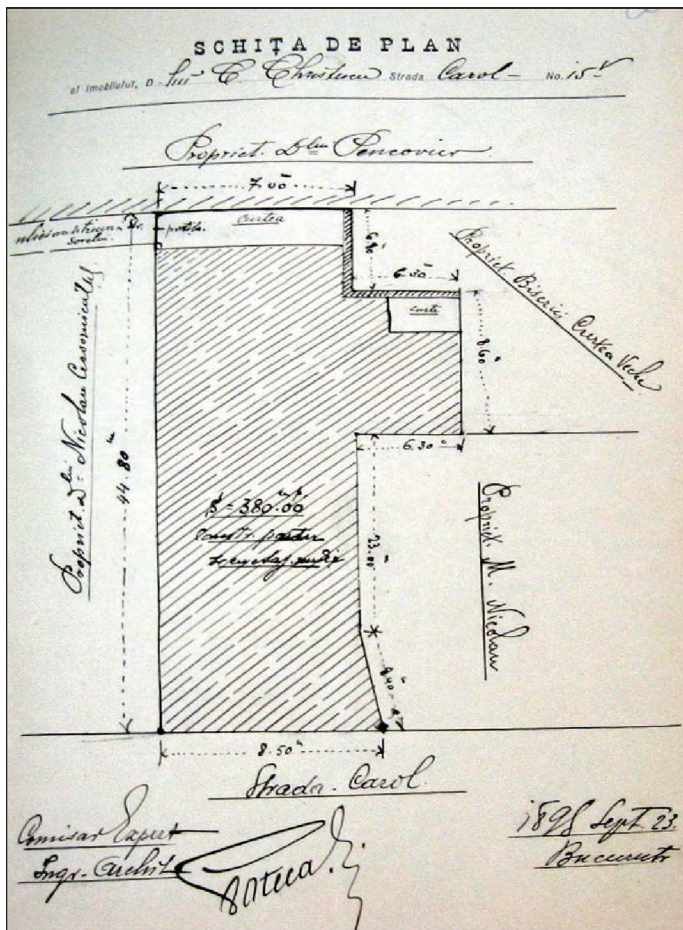 SCHIȚA DE PLAN
al Imobilului, D-lui C Christescu Strada Carol - No. 15
Propriet. D-lui
7.00
curtea
6.80
6.30
curte
8.60
6.30
Propriet. Biserici Curtea Veche
Propriet. D-lui Nicolau
44.80 m
S = 380.00 m.p.
constr. parter
23.00
8.40
Propriet. M. Nicolau
8.50 m
Strada Carol
Comisar Expert
Ingr. Archit.
1898 Sept. 23.
Bucuresti